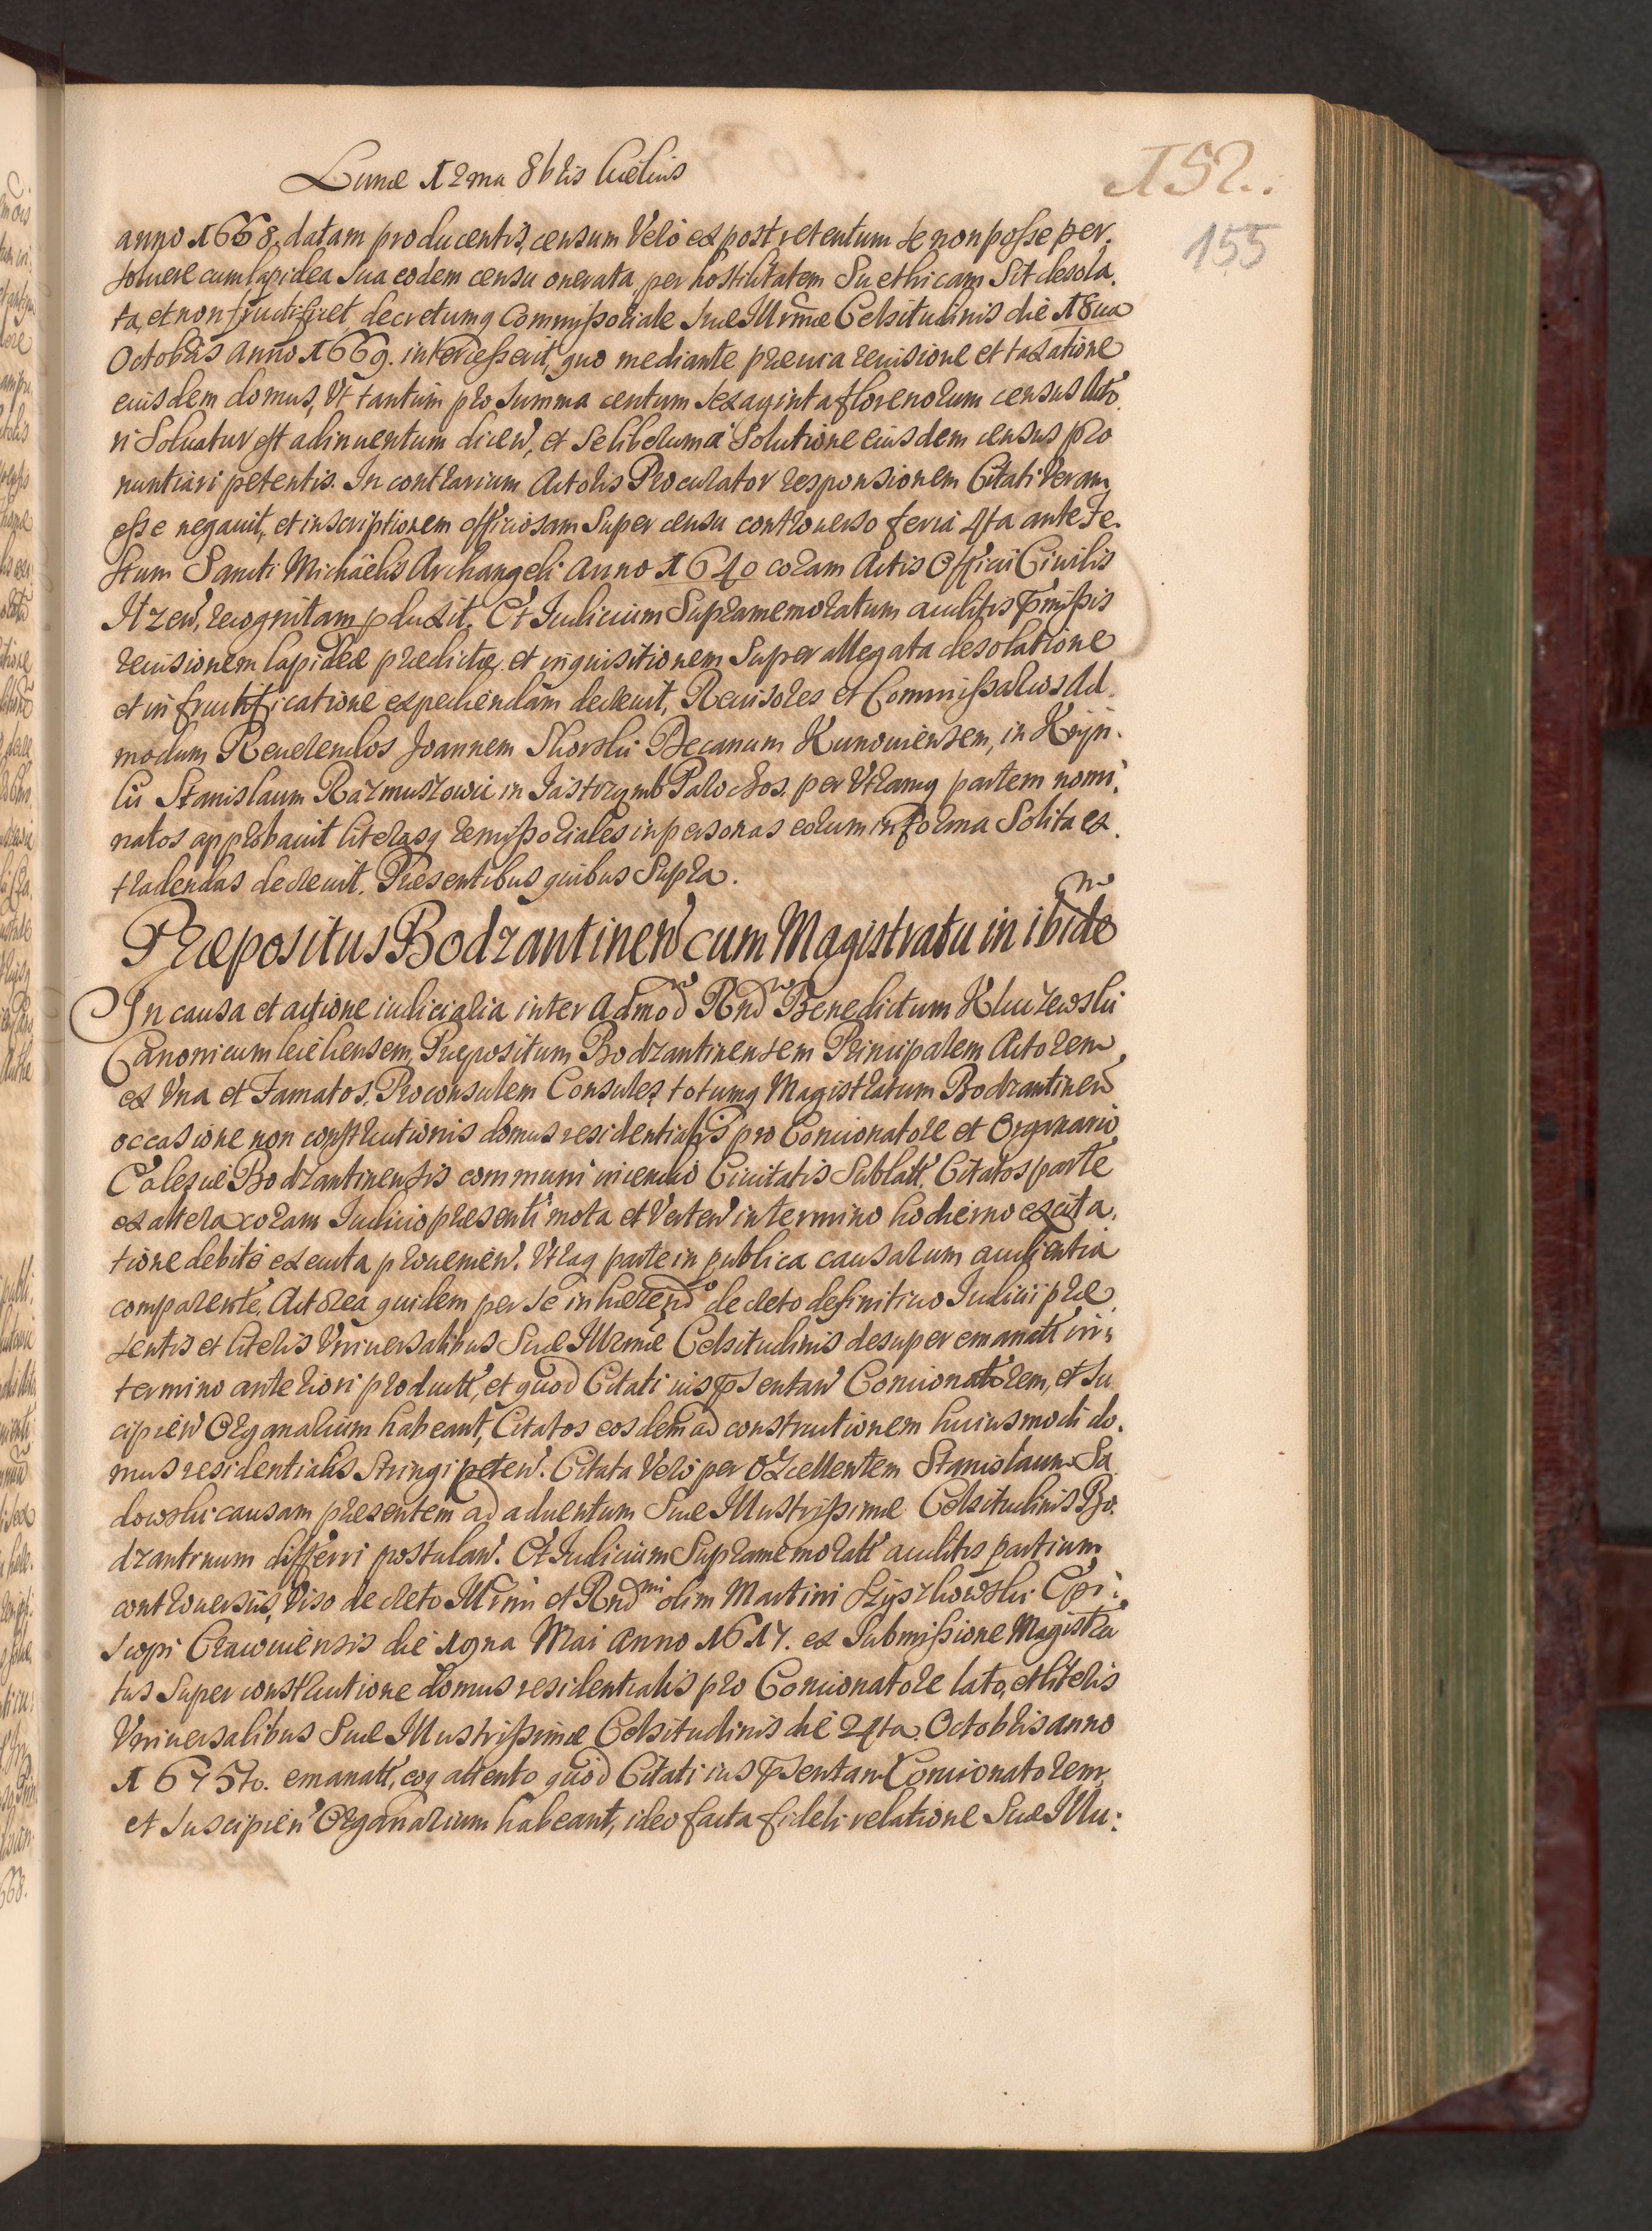 Lunæ 12ma 8bris Kielcis
152.
155
anno 1668. datam producentis, censum Vero ex post retentum se non posse per,
soluere cum lapidea sua eodem censu onerata, per hostilitatem Suethicam Sit desola,
ta, et non fructificet decretumq Commissoriale Suæ Illrmæ Celsitudinis die 18ua
Octobris Anno 1669. intercesserit, quo mediante præuia reuisione et taxatione
eiusdem domus, Vt tantum pro summa centum sexaginta florenorum census Acto,
ri Soluatur est adinuentum dicen, et Se liberum a Solutione eiusdem census pro
nuntiari petentis. In contrarium Actoris Procurator responsionem Citati Veram
esse negauit, et inscriptionem officiosam Super censu controuerso feria 4ta ante Fe,
stum Sancti Michaelis Archangeli Anno 1640 coram Actis Officii Ciuilis
Ilzen, recognitam pduxit. Et Iudicium Supramemoratum auditis pmissis
reuisionem lapideæ prædictæ et inquisitionem Super allegata desolatione
et infructificatione expediendam decreuit, Reuisores et Commissarios Ad
modum Reuerendos Joannem Skorski Decanum Kunouiensem, in Krijn,
ki Stanislaum Razmuszowic in Jastrzymb Parochos per Vtramq partem nomi,
natos approbauit literasq remissoriales in personas eorum in forma Solita ex,
tradendas decreuit. Præsentibus quibus Supra.
Præpositus Bodzantinen cum Magistratu in ibide
In causa et actione iudicialia inter Admod Rnd Benedictum Kluczewski
Canonicum Kielcensem, Præpositum Bodzantinensem Principalem Actorem
ex Vna et Famatos, Proconsulem Consules, totumq Magistratum Bodzantinen
occasione non constructionis domus residentialis pro Concionatore et Organario
Ecclesiæ Bodzantinensis communi incendio Ciuitatis Sublatt, Citatos parte
ex altera coram Iudicio præsenti mota et Verten in termino hodierno ex cita,
tione debite executa prouenien. Vtraq parte in publica causarum audientia
comparente, Actorea quidem per se inhærend decreto definitiuo Iudicii præ
sentis et literis Vniuersalibus Suæ Illrmæ Celsitudinis desuper emanatt in,
termino anteriori productt, et quod Citati ius pSentan Concionatorem, et Su
cipien Organarium habeant, Citatos eosdem ad constructionem huiusmodi do,
mus residentialis Stringi peten. Citata Vero per Excellentem Stanislaum Sa
dowski causam præsentem ad aduentum Suæ Illustrissimæ Celsitudinis Bo,
dzantinum differri postulan. Et Iudicium Supramemoratt auditis partium
controuersiis, Viso decreto Illrmi et Rndmi olim Martini Szyszkowski Epi,
scopi Cracouiensis die 19na Mai Anno 1617. ex Submissione Magistra
tus Super constructione domus residentialis pro Concionatore lato, et literis
Vniuersalibus Suæ Illustrissimæ Celsitudinis die 24ta Octobris anno
1675to. emanatt, eoq attento quod Citati ius pSentan Concionatorem,
et Suscipien Organarium habeant, ideo facta fideli relatione Suæ Illu,